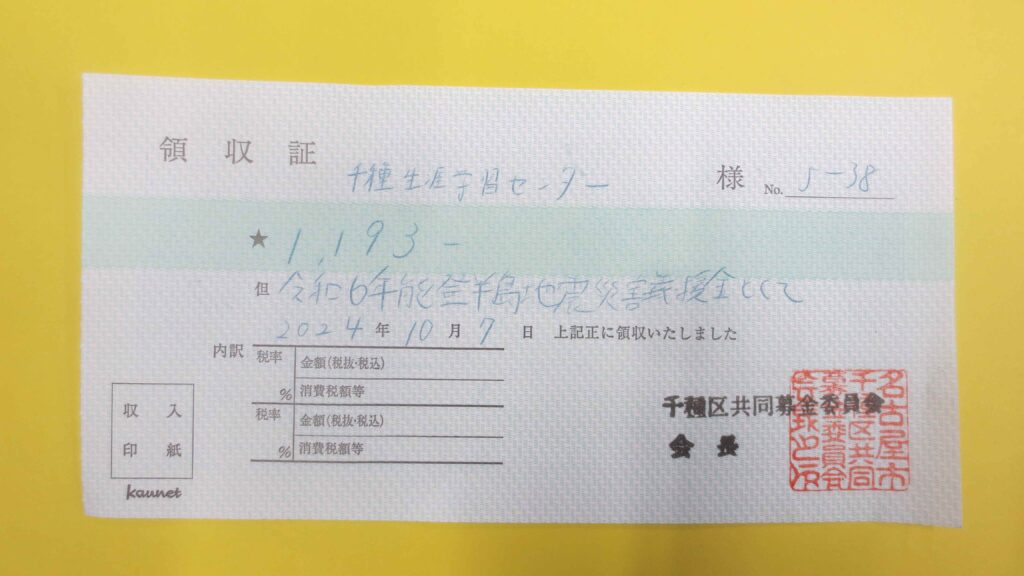 領収証
千種生涯学習センター 様 No. 5-38
★ 1,193-
但 令和6年能登半島地震災害義援金として
2024年10月7日 上記正に領収いたしました
内訳 税率 % 金額(税抜・税込)
消費税額等
税率 % 金額(税抜・税込)
消費税額等
収入
印紙
kaunet
千種区共同募金委員会
会長
名古屋市
千種区共同
募金委員会